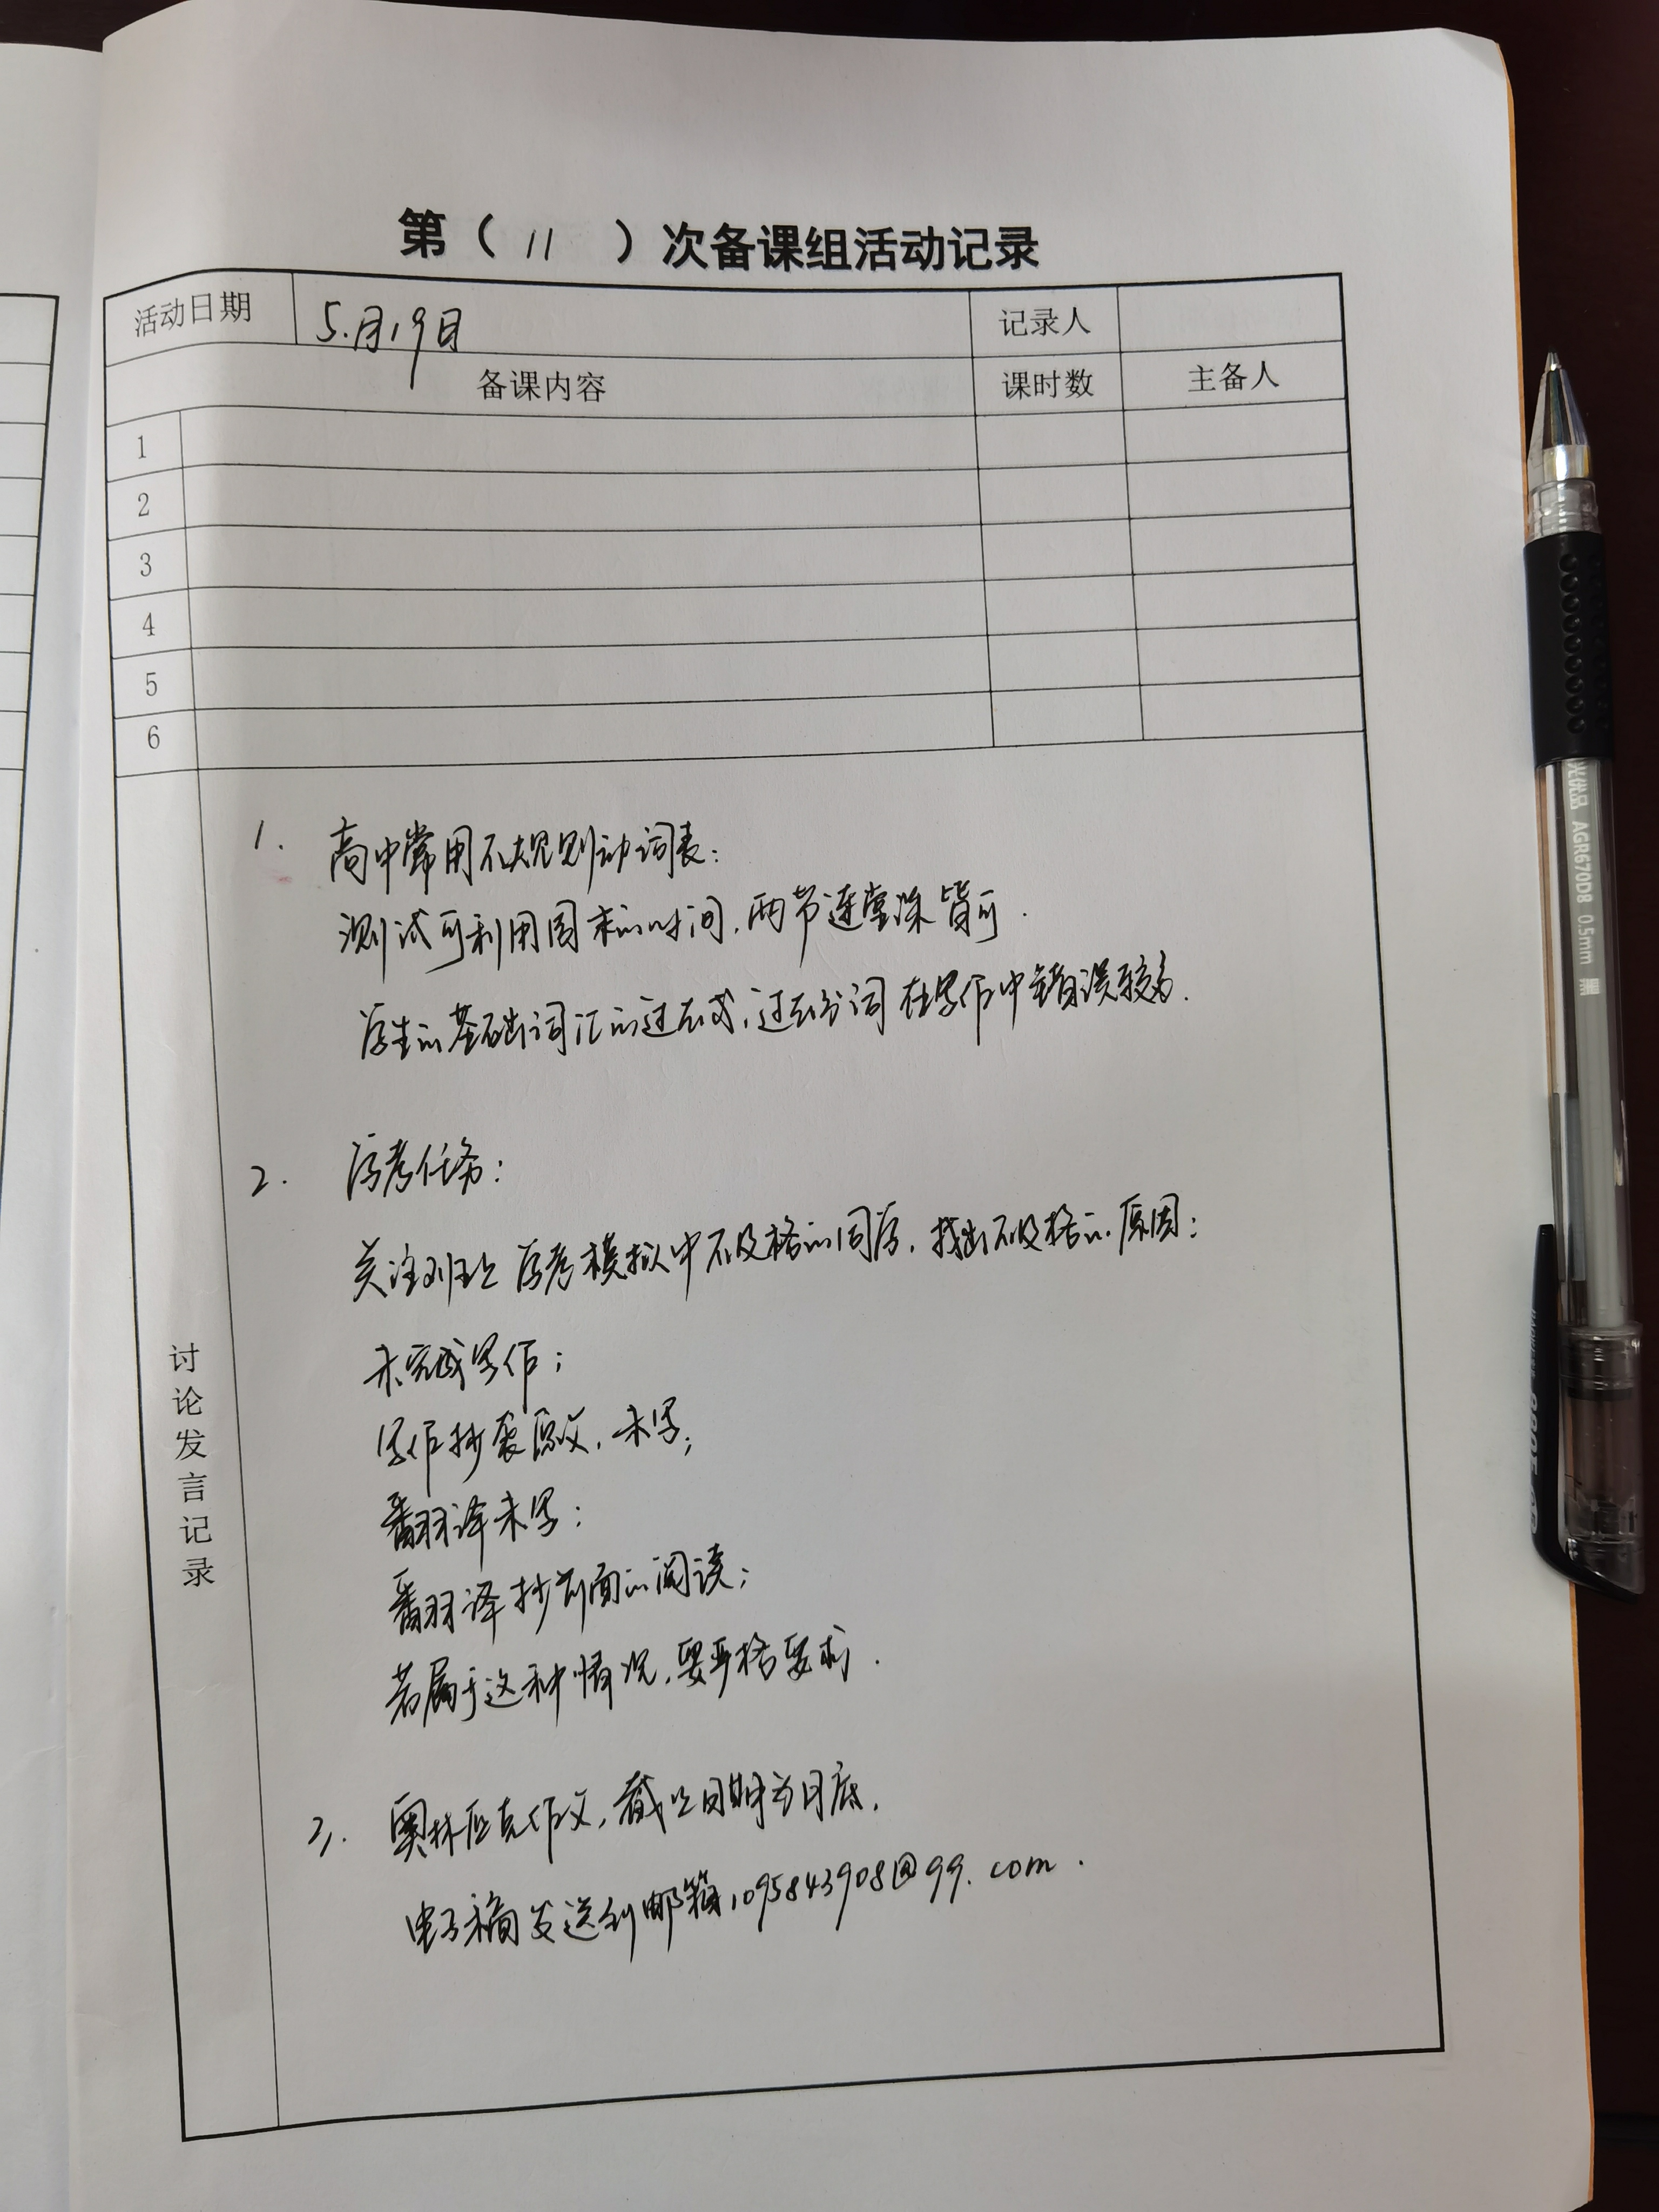 第（ 11 ）次备课组活动记录
活动日期 5.月19日 记录人
备课内容 课时数 主备人
1
2
3
4
5
6
讨论发言记录
1. 高中常用不规则动词表:
测试可利用周末的时间,两节连堂课皆可.
学生的基础词汇的过去式,过去分词在写作中错误较多.
2. 学考任务:
关注班上学考模拟中不及格的同学,找出不及格的原因:
未完成写作;
写作抄袭原文,未写;
翻译未写;
翻译抄前面的阅读;
若属于这种情况,要严格要求.
3. 奥林匹克作文,截止日期为月底.
电子稿发送到邮箱1095843908@qq.com.
优品 AGR670D8 0.5mm 黑